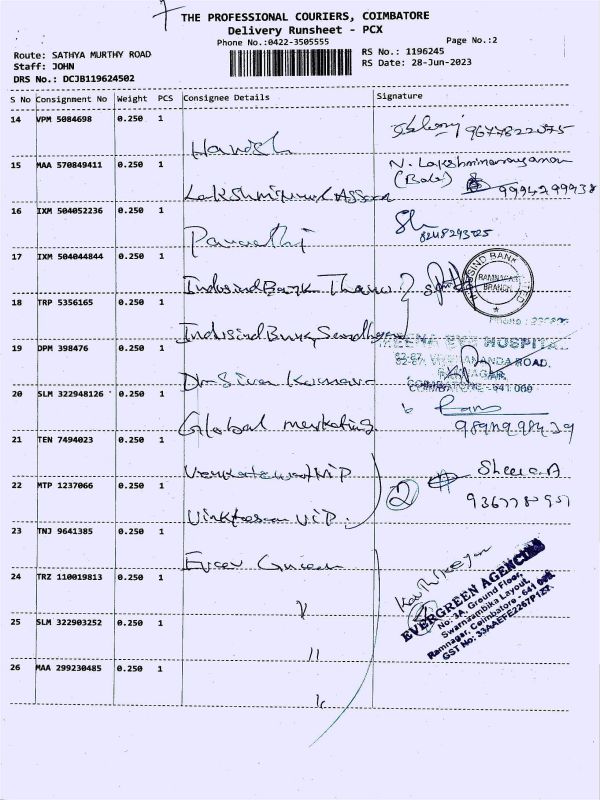 THE PROFESSIONAL COURIERS, COIMBATORE
Delivery Runsheet - PCX
Phone No.:0422-3505555
Page No.:2
Route: SATHYA MURTHY ROAD
RS No.: 1196245
Staff: JOHN
RS Date: 28-Jun-2023
DRS No.: DCJB119624502
S No Consignment No Weight PCS Consignee Details Signature
14 VPM 5084698 0.250 1
Harish 9677822075
15 MAA 570849411 0.250 1 N. Lakshminarayanan
(Babu) 9994299938
16 IXM 504052236 0.250 1
Parvathi 8248293725
17 IXM 504044844 0.250 1
INDUSIND BANK LIMITED
RAMNAGAR
BRANCH
Indusind Bank
18 TRP 5356165 0.250 1
Phone :
Indusind Bank
19 DPM 398476 0.250 1
MEENA EYE HOSPITAL
ROAD,
RAMNAGAR,
COIMBATORE -641 009
Dr Siva Kumar
20 SLM 322948126 0.250 1
Global marketing
21 TEN 7494023 0.250 1
VIP
22 MTP 1237066 0.250 1
2
VIP
23 TNJ 9641385 0.250 1
Ever Green
Karthikeyan
24 TRZ 110019813 0.250 1
EVERGREEN AGENCIES
No: 3A, Ground Floor,
Swarnambika Layout,
Ramnagar, Coimbatore - 641 009.
GST No: 33AAEFE2267P1Z7
25 SLM 322903252 0.250 1
"
26 MAA 299230485 0.250 1